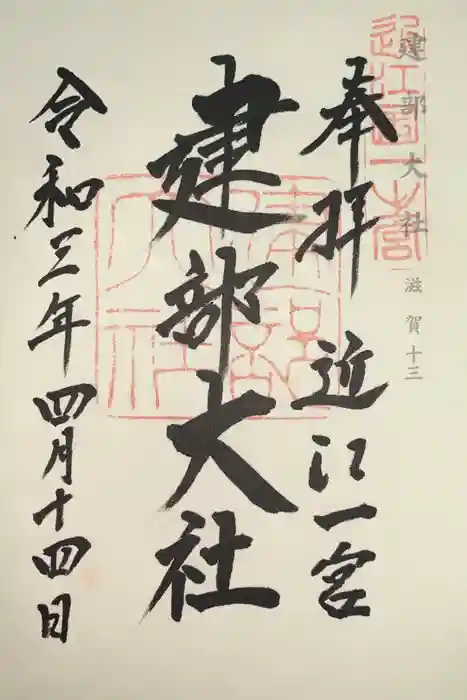 建部大社
滋賀十三
近江国一之宮
奉拝 近江一宮
建部大社
建部大社
令和三年四月十四日